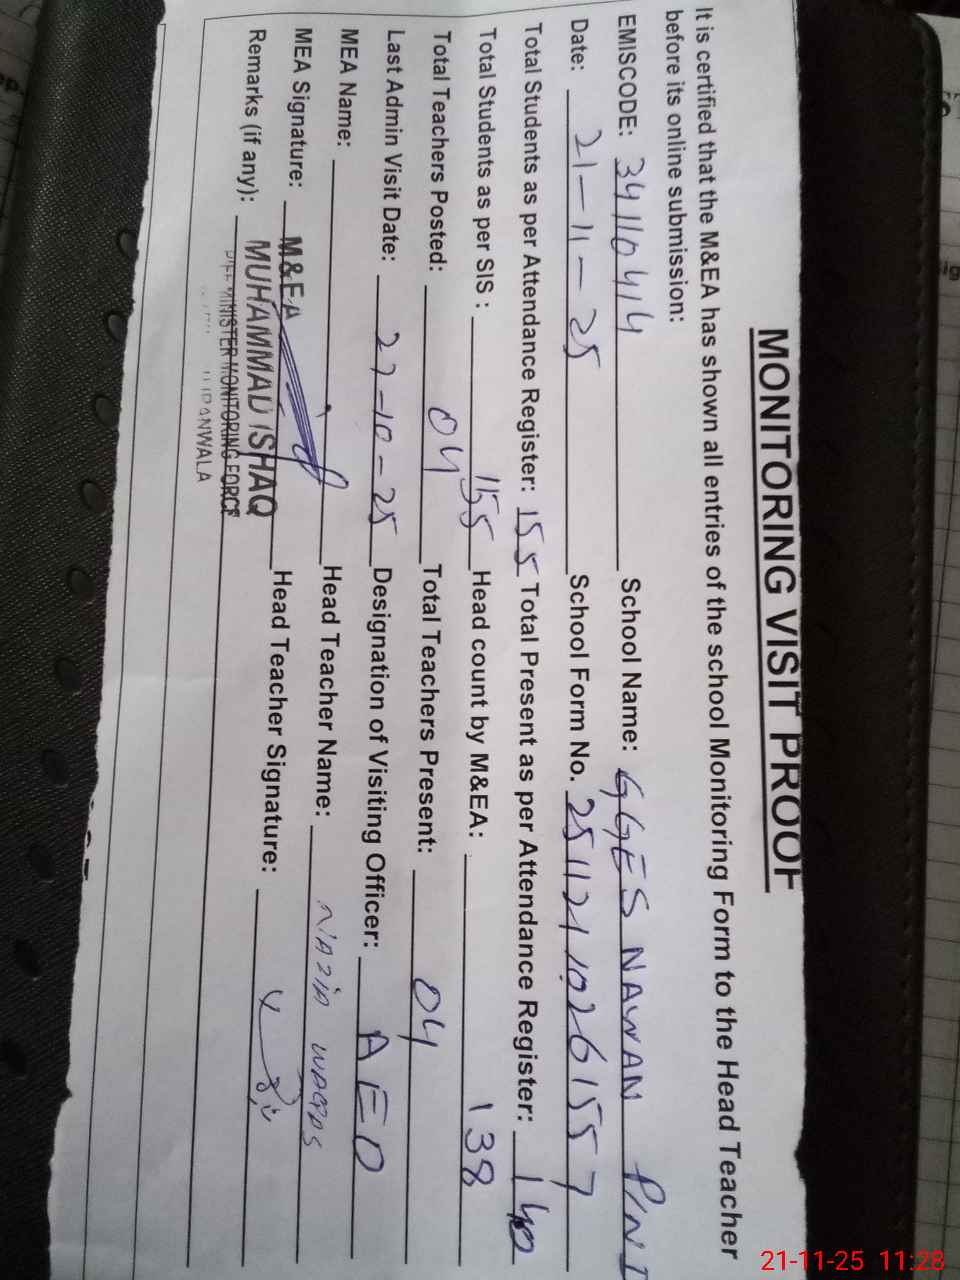 MONITORING VISIT PROOF
It is certified that the M&EA has shown all entries of the school Monitoring Form to the Head Teacher
before its online submission:
EMISCODE: 34110414 School Name: GGES NAWAN PIND
Date: 21-11-25 School Form No. 2511211026157
Total Students as per Attendance Register: 155 Total Present as per Attendance Register: 140
Total Students as per SIS : 155 Head count by M&EA: 138
Total Teachers Posted: 04 Total Teachers Present: 04
Last Admin Visit Date: 27-10-25 Designation of Visiting Officer: AEO
MEA Name: Head Teacher Name: NAZIA
MEA Signature: Head Teacher Signature:
Remarks (if any):
M&EA
MUHAMMAD ISHAQ
MINISTER MONITORING FORCE
21-11-25 11:28